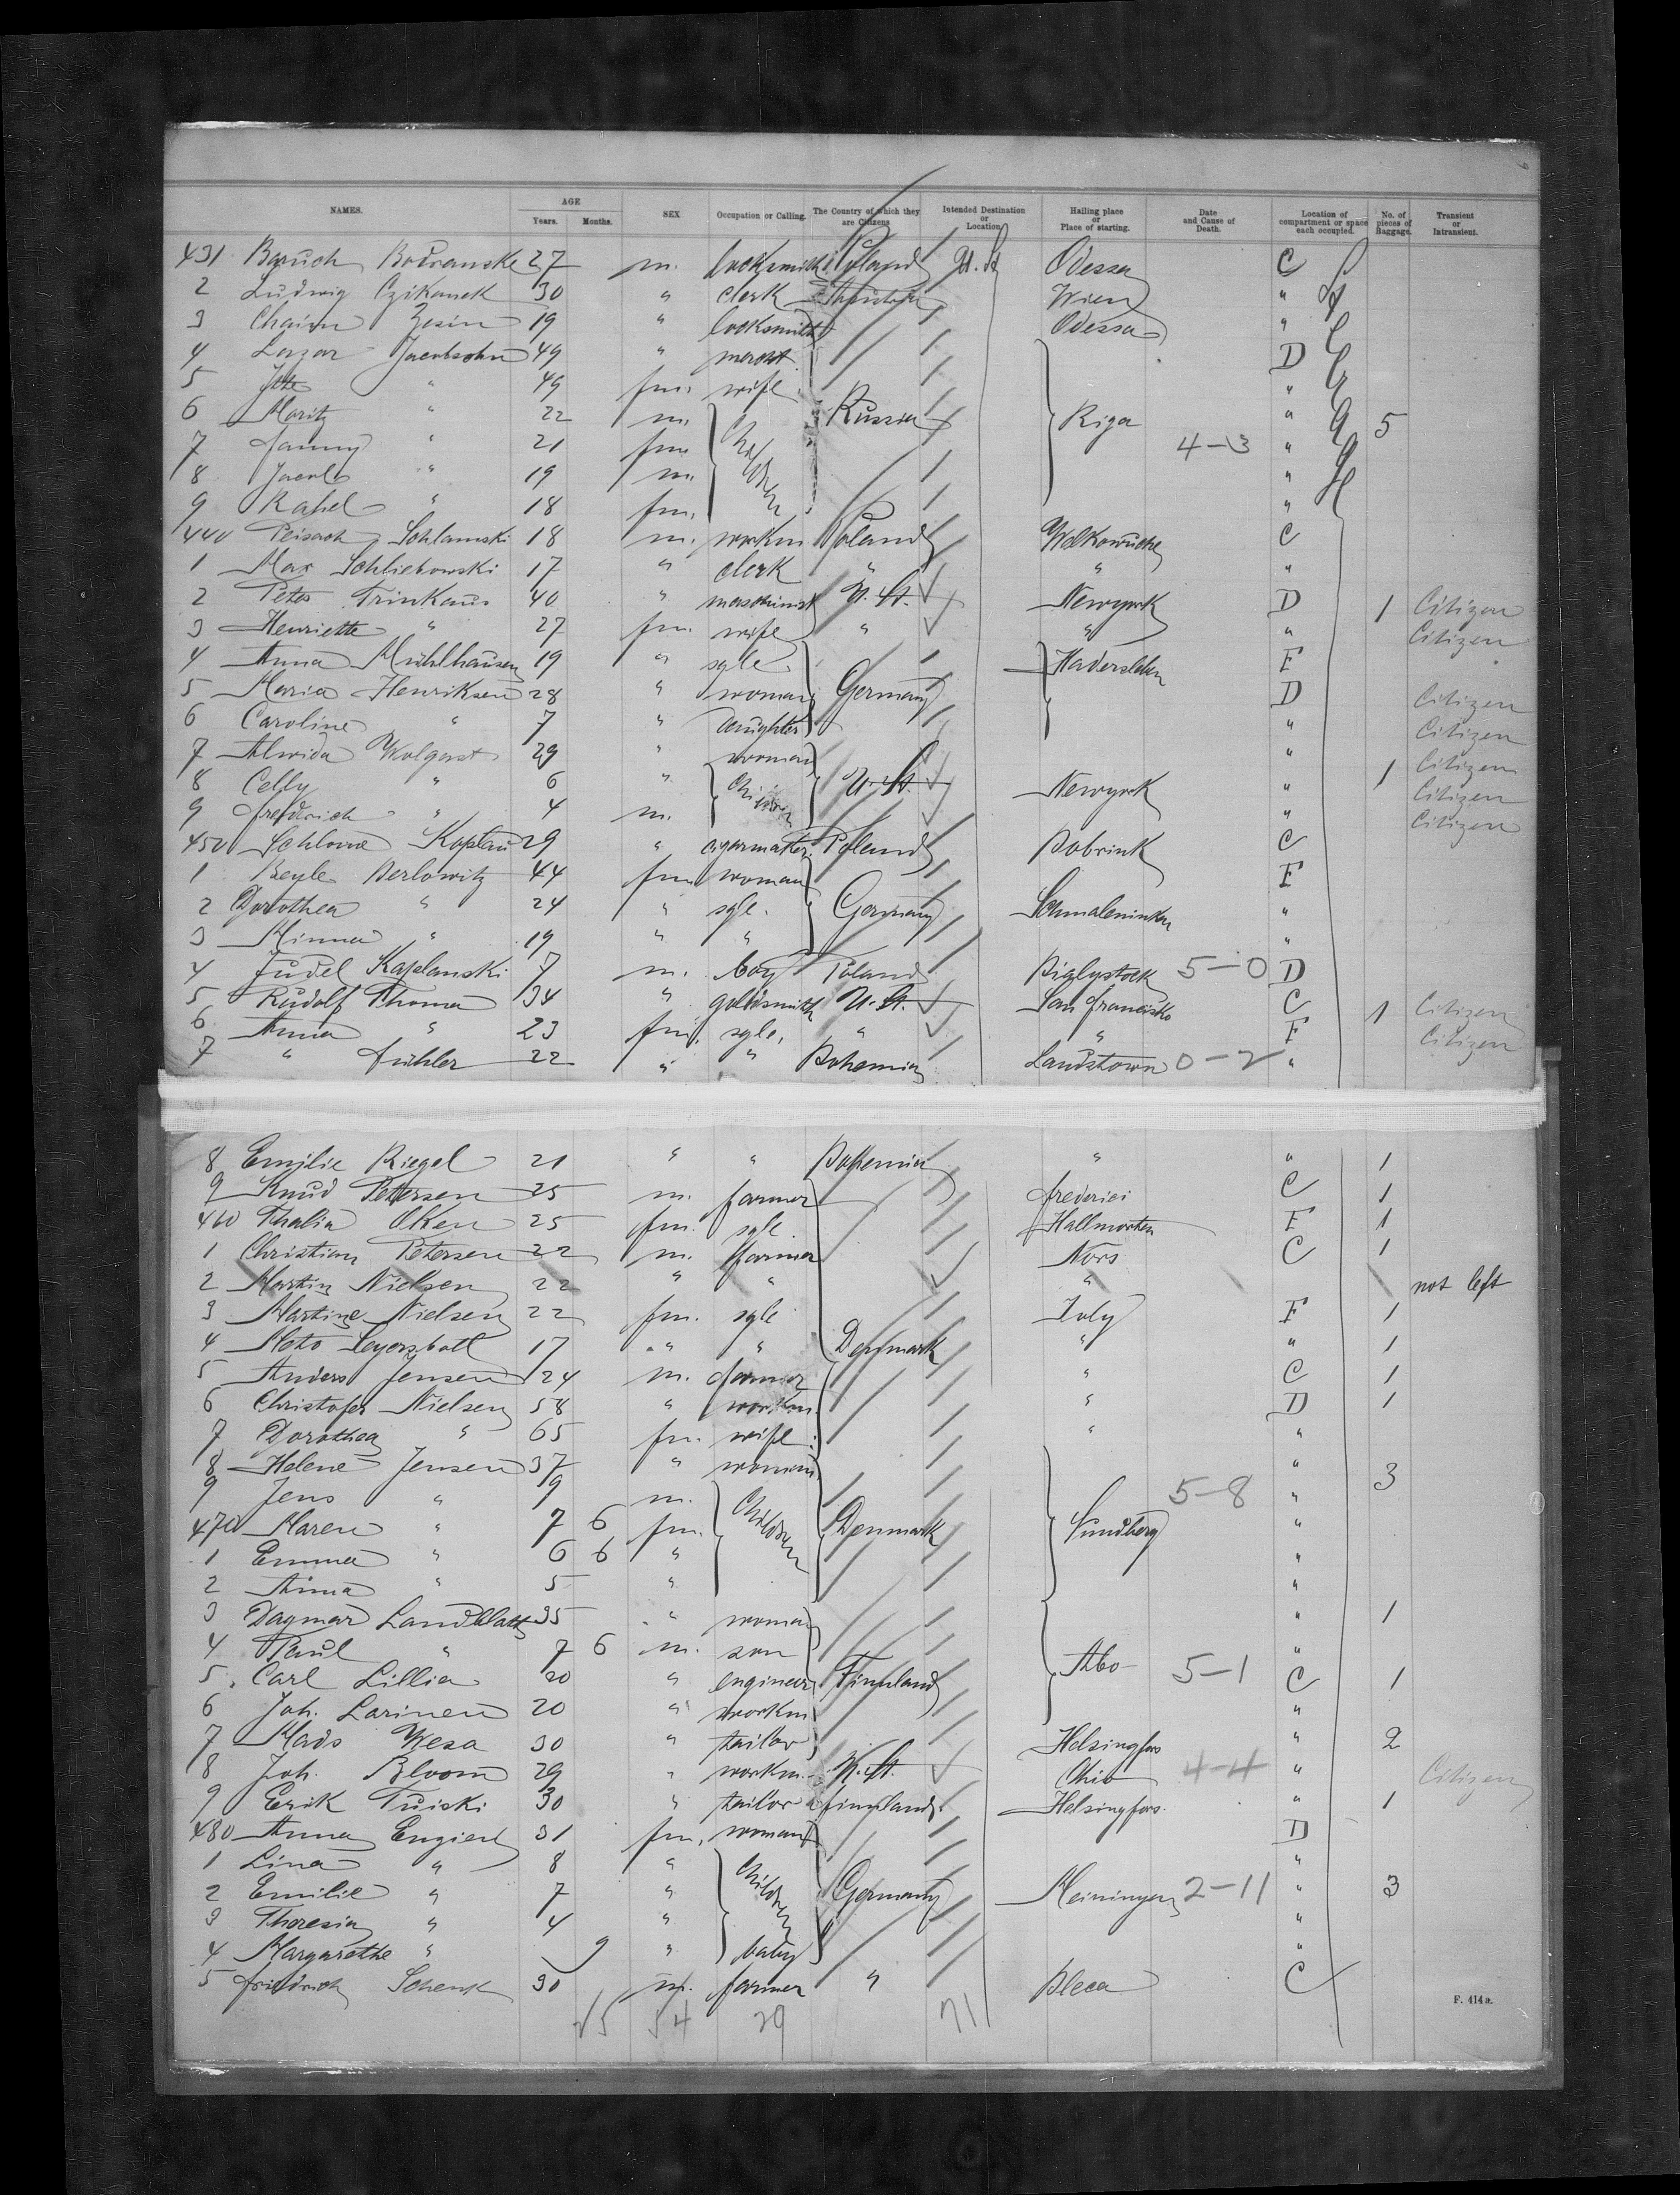 NAMES. AGE Years. Months. SEX Occupation or Calling. The Country of which they are Citizens Intended Destination or Location Hailing place or Place of starting. Date and Cause of Death. Location of compartment or space each occupied. No. of pieces of Baggage. Transient or Intransient.
431 Baruch 27 m. locksmith Poland U. St Odessa C
2 Ludwig Czikanek 30 " clerk Wien "
3 Chaim 19 " locksmith Odessa "
4 Lazar Jacobsohn 49 " D
5 " 49 fm. wife "
6 Moritz " 22 m. Russia Riga " 5
7 Fanny " 21 fm. Children 4-3 "
8 Jacob " 19 m. "
9 Rahel " 18 fm. "
440 Peisach Schlamski 18 m. workm Poland C
1 Max Schliebowski 17 " clerk " " "
2 Peter Trinkaus 40 " maschinist U. St. Newyork D 1 Citizen
3 Henriette " 27 fm. wife " " " Citizen
4 Anna Mühlhausen 19 " sgle. Hadersleben F
5 Maria Henriksen 28 " woman Germany D Citizen
6 Caroline " 7 " daughter " Citizen
7 Alwida Wolgast 29 " woman " Citizen
8 Celly " 6 " Children U. St. Newyork " 1 Citizen
9 Fredrich " 4 m. " Citizen
450 Schlome Koplan 29 " cigarmaker Poland Bobrink C
1 Beyle Berlowitz 44 fm. woman F
2 Dorothea " 24 " sgle. Germany Schmaleninken "
3 Minna " 19 " " "
4 Judel Kaplanski 7 m. boy Poland Bialystock 5-0 D
5 Rudolf Thoma 34 " goldsmith U. St. San Francisko C 1 Citizen
6 Anna " 23 fm. sgle. " " F Citizen
7 " Fühler 22 " " Bohemia Landstown 0-2 "
8 Emilie Riegel 21 " " Bohemia " " 1
9 Knud Petersen 25 m. farmer Frederici C 1
460 Thalia Oken 25 fm. sgle F 1
1 Christian Petersen 22 m. farmer Nors C 1
2 Martin Nielsen 22 " " " not left
3 Martine Nielsen 22 fm. sgle F 1
4 17 " " Denmark " " 1
5 Anders Jensen 24 m. farmer " C 1
6 Christofer Nielsen 58 " workm. " D 1
7 Dorothea " 65 fm. wife " "
8 Helene Jensen 37 " woman "
9 Jens " 9 m. 5-8 " 3
470 Maren " 7 6 fm. Children Denmark Sundberg "
1 Emma " 6 6 " "
2 Anna " 5 " "
3 Dagmar Landblatt 35 " woman " 1
4 Paul " 7 6 m. son "
5 Carl Lillia 20 " engineer Finnland Abo 5-1 C 1
6 Joh. Larinen 20 " workm "
7 Mads Wesa 30 " tailor Helsingfors " 2
8 Joh. Bloom 29 " workm. U. St. Ohio 4-4 " Citizen
9 Erik Tuiski 30 " tailor Finnland Helsingfors. " 1
480 Anna Engiert 31 fm. woman D
1 Lina " 8 " "
2 Emilie " 7 " Children Germany Meiningen 2-11 " 3
3 Theresia " 4 " "
4 Margarethe " 9 " baby "
5 Friedrich Schenk 30 m. farmer " Pleca C
25 54 29 71
F. 414a.